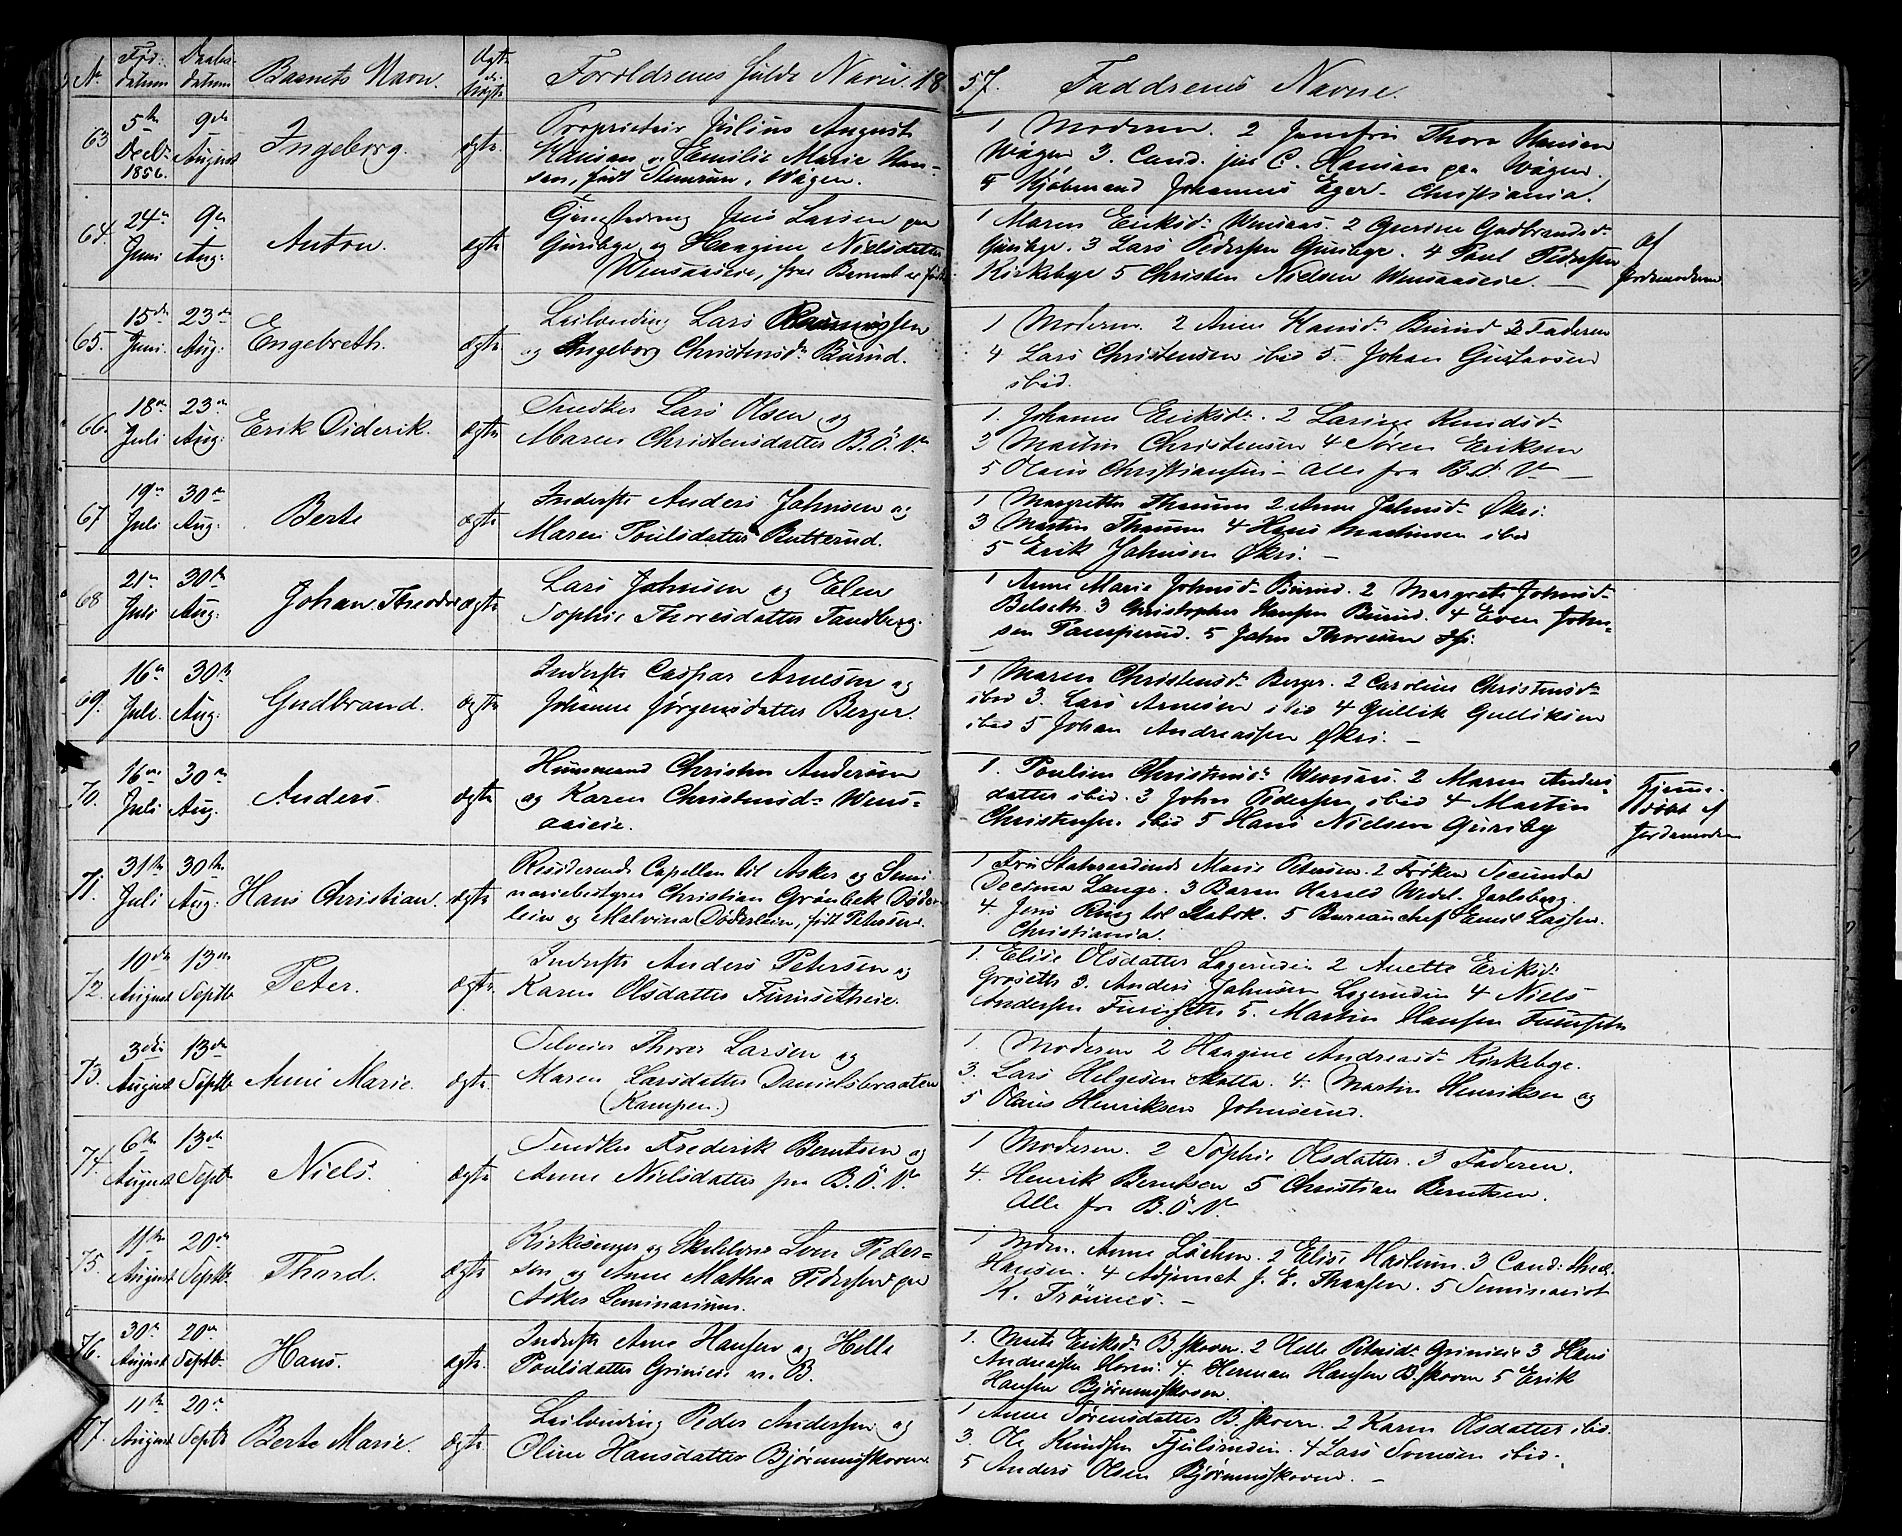 No Fød: datum Daabs datum Barnets Navn. Ægte el. Uægte Foreldrenes fulde Navn. 1857. Faddrenes Navne.
63 5te Decbr 1856. 9de August Ingeborg. ægte. Proprietair Julius August
Hansen og Emilie Marie Han-
sen, født
1 Moderen. 2 Jomfru Thora Hansen
3. Cand. jur C. Hansen
Kjøbmand Johannes Eger. Christiania.
64. 24de Juni 9de Aug: Anton. ægte Lars Larsen paa
Gusebye og Haagine Nielsdatter
1 Maren Eriksd. Wensaas. 2 Gurine Gudbrandsd.
3 Lars Pedersen 4 Paul Pedersen
Kirkebye 5 Christen Nielsen Wensaaseie. Af Jordemoderen
65. 15de Juni. 23de Aug: Engebreth. ægte Leilending Lars Rasmussen
og Ingeborg Christensd. Burud.
1 Moderen. 2 Anne Hansd. Burud 3 Faderen
4 Lars Christensen ibid 5. Johan Gustavsen
ibid.
66. 18de Juli 23de Aug: Erik Diderik. ægte Smedker Lars Olsen og
Maren Christensdatter B.Ö.V.
1. Johanne Eriksd. 2 Larine Knudsd.
3 Martin Christensen 4 Søren Eriksen
5 Olaus Christiansen - Alle fra B.Ö.V. —
67 19de Juli 30te Aug. Berte ægte Inderste Anders Jahnsen og
Maren Poulsdatter Butterud.
1 Margrethe 2 Anne Jahnsd. Økri.
3 Martin 4 Hans Martinsen ibid
5 Erik Jahnsen Økri. —
68 21de Juli 30te Aug. Johan Theodor ægte Lars Johnsen og Elen
Sophie Thoresdatter Tandberg.
1 Anne Marie Johnsd. Burud. 2 Margrete Johnsd.
Belseth. 3 Christopher Hansen Burud. 4 Even John-
sen 5 John Thoresen
69. 16de Juli. 30te Aug. Gudbrand. ægte Inderste Caspar Arnesen og
Johanne Jørgensdatter Berger.
1 Maren Christensd. Berger. 2 Caroline Christensd.
ibid 3. Lars Arnesen ibid 4 Gullik Gulliksen
ibid 5 Johan Andreassen Økri. —
70. 16de Juli 30te Aug. Anders. ægte Huusmand Christen Andersen
og Karen Christensd. Wens-
aaseie.
1. Pouline Christensd. Wensaas. 2 Maren Anders-
datter ibid. 3 John Pedersen ibid 4 Martin
Christensen ibid 5 Hans Nielsen Guriby Hjemme-døbt af Jordemoderen
71. 31te Juli 30te Aug: Hans Christian. ægte Residerende Capellan til Asker og Semi
nariebestyrer Christian Grønbek Döder
lein og Malvina Döderlein, født Petersen.
1 Fru Statsraadinde Marie Petersen. 2 Frøken Secunda
Decima Lange. 3 Baron Harald Wedel Jarlsberg.
4. Jens Ring til Stabek. 5 Bureauchef Emil Lassen.
Christiania.
72. 10de August 13de Septb. Peter. ægte. Inderste Anders Petersen og
Karen Olsdatter Finnsetheie.
1. Elise Olsdatter 2 Anette Eriksd.
3. Anders Jahnsen 4 Niels
Andersen 5. Martin Hansen
73. 3die August 13de Septb. Anne Marie. ægte. Selveier Thorer Larsen og
Maren Larsdatter Danielsbraaten
(Kampen.)
1. Moderen 2 Haagine Andreasd. Kirkebye.
3. Lars Helgesen Skotta. 4. Martin Henriksen og
5 Olaus Henriksen Johnsrud.
74. 6te August 13de Septb. Niels. ægte Smedker Frederik Berntsen og
Anne Nielsdatter fra B.Ö.V.
1 Moderen. 2 Sophie Olsdatter. 3 Faderen.
4. Henrik Berntsen 5 Christian Berntsen.
Alle fra B.Ö.V.
75. 11te August. 20de Septb. Thord. ægte Kirkesanger og Skolelærer Sven Peder-
sen og Anne Mathea Pedersen paa
Asker Seminarium.
1 Mdm. Anne Løchen. 2 Elise Haslum. 3 Cand: theol.
Hansen. 4 Adjunct J. E. Thaasen. 5 Seminarist
K. Trönnes. —
76. 30te August 20de Septb. Hans. ægte. Inderste Arne Hansen og Helle
Poulsdatter Grinieie v. B.
1. Marte Eriksd. B.skoven. 2 Helle Petersd. Grinieie 3 Hans
Andreassen 4 Herman Hansen B.skoven 5 Erik
Hansen Bjørumskoven.
77. 11te August 20de Septb. Berte Marie. ægte. Leilending Peder Andersen og
Oline Hansdatter Bjørumskoven.
1 Anne Sørensdatter B.skoven. 2 Karen Olsdatter ibid.
3. Ole Knudsen 4 Lars ibid.
5 Anders Olsen Bjørumskoven. —